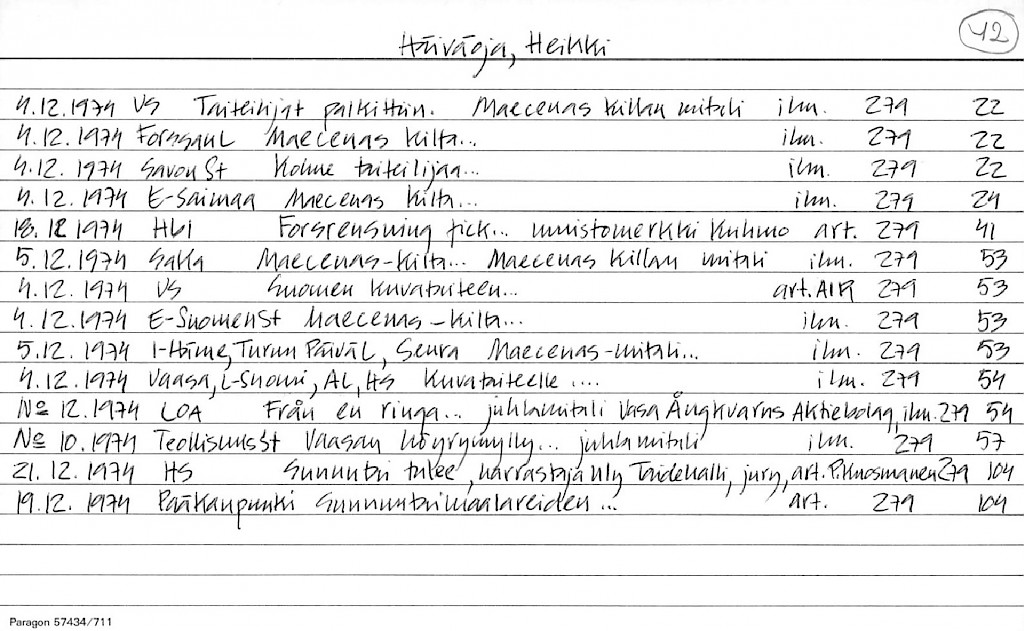 42
Häiväoja, Heikki
4.12.1974 US Taiteilijat palkittiin. Maecenas killan mitali ilm. 279 22
4.12.1974 ForssanL Maecenas kilta... ilm. 279 22
4.12.1974 SavonSt Kolme taiteilijaa... ilm. 279 22
4.12.1974 E-Saimaa Maecenas kilta... ilm. 279 24
18.12.1974 Hbl Forsrensning fick... muistomerkki Kuhmo art. 279 41
5.12.1974 SaKa Maecenas-kilta... Maecenas killan mitali ilm. 279 53
4.12.1974 US Suomen kuvataiteen... art. AIR 279 53
4.12.1974 E-SuomenSt Maecenas-kilta... ilm. 279 53
5.12.1974 I-Häme, Turun PäiväL, Seura Maecenas-mitali... ilm. 279 53
4.12.1974 Vaasa, L-Suomi, AL, HS Kuvataiteelle .... ilm. 279 54
No 12.1974 LOA Från en ringa... juhlamitali Vasa Ångkvarns Aktiebolag, ilm. 279 54
No 10.1974 TeollisuusSt Vaasan höyrymylly... juhlamitali ilm. 279 57
21.12.1974 HS Sunnuntai tulee, harrastajanly Taidehalli, jury, art. P.Kuosmanen 279 104
19.12.1974 Pääkaupunki Sunnuntaimaalareiden ... art. 279 104
Paragon 57434/711